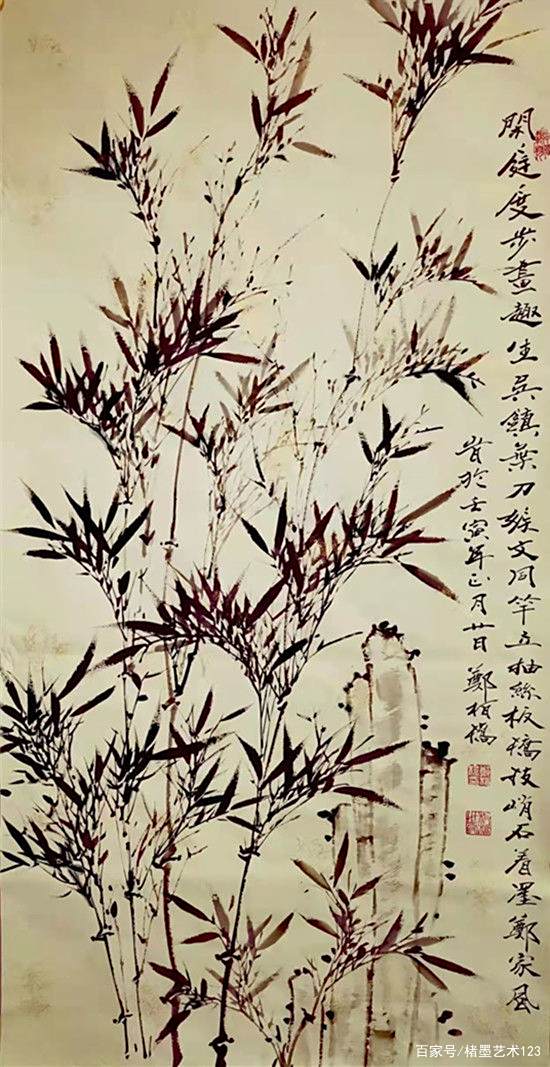 閑庭度步畫趣生吳鎮葉刀文同竿抽絲板橋枝峭石着墨鄭家風
於壬寅年正月廿日鄭
百家号/楮墨艺术123